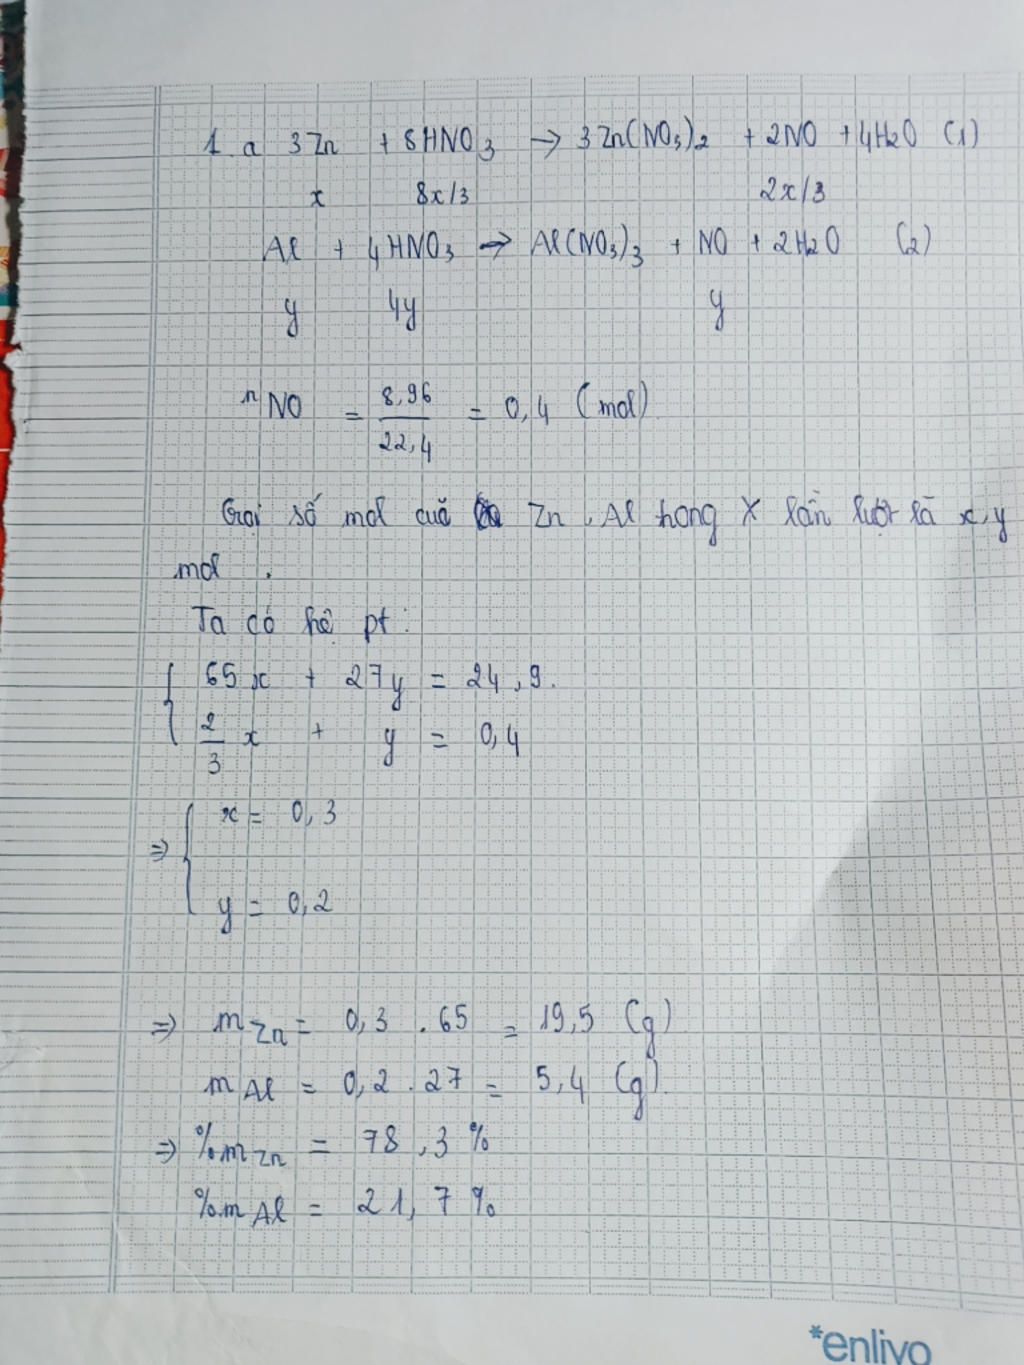 1. a 3Zn + 8HNO3 → 3Zn(NO3)2 + 2NO + 4H2O (1)
x 8x/3 2x/3
Al + 4HNO3 → Al(NO3)3 + NO + 2H2O (2)
y 4y y
nNO = 8,96/22,4 = 0,4 (mol)
Gọi số mol của Zn, Al trong X lần lượt là x, y
mol.
Ta có hệ pt:
65x + 27y = 24,9.
2/3 x + y = 0,4
⇒ { x = 0,3
y = 0,2
⇒ mZn = 0,3 . 65 = 19,5 (g)
mAl = 0,2 . 27 = 5,4 (g).
⇒ %mZn = 78,3 %
%mAl = 21,7 %
*enlivo